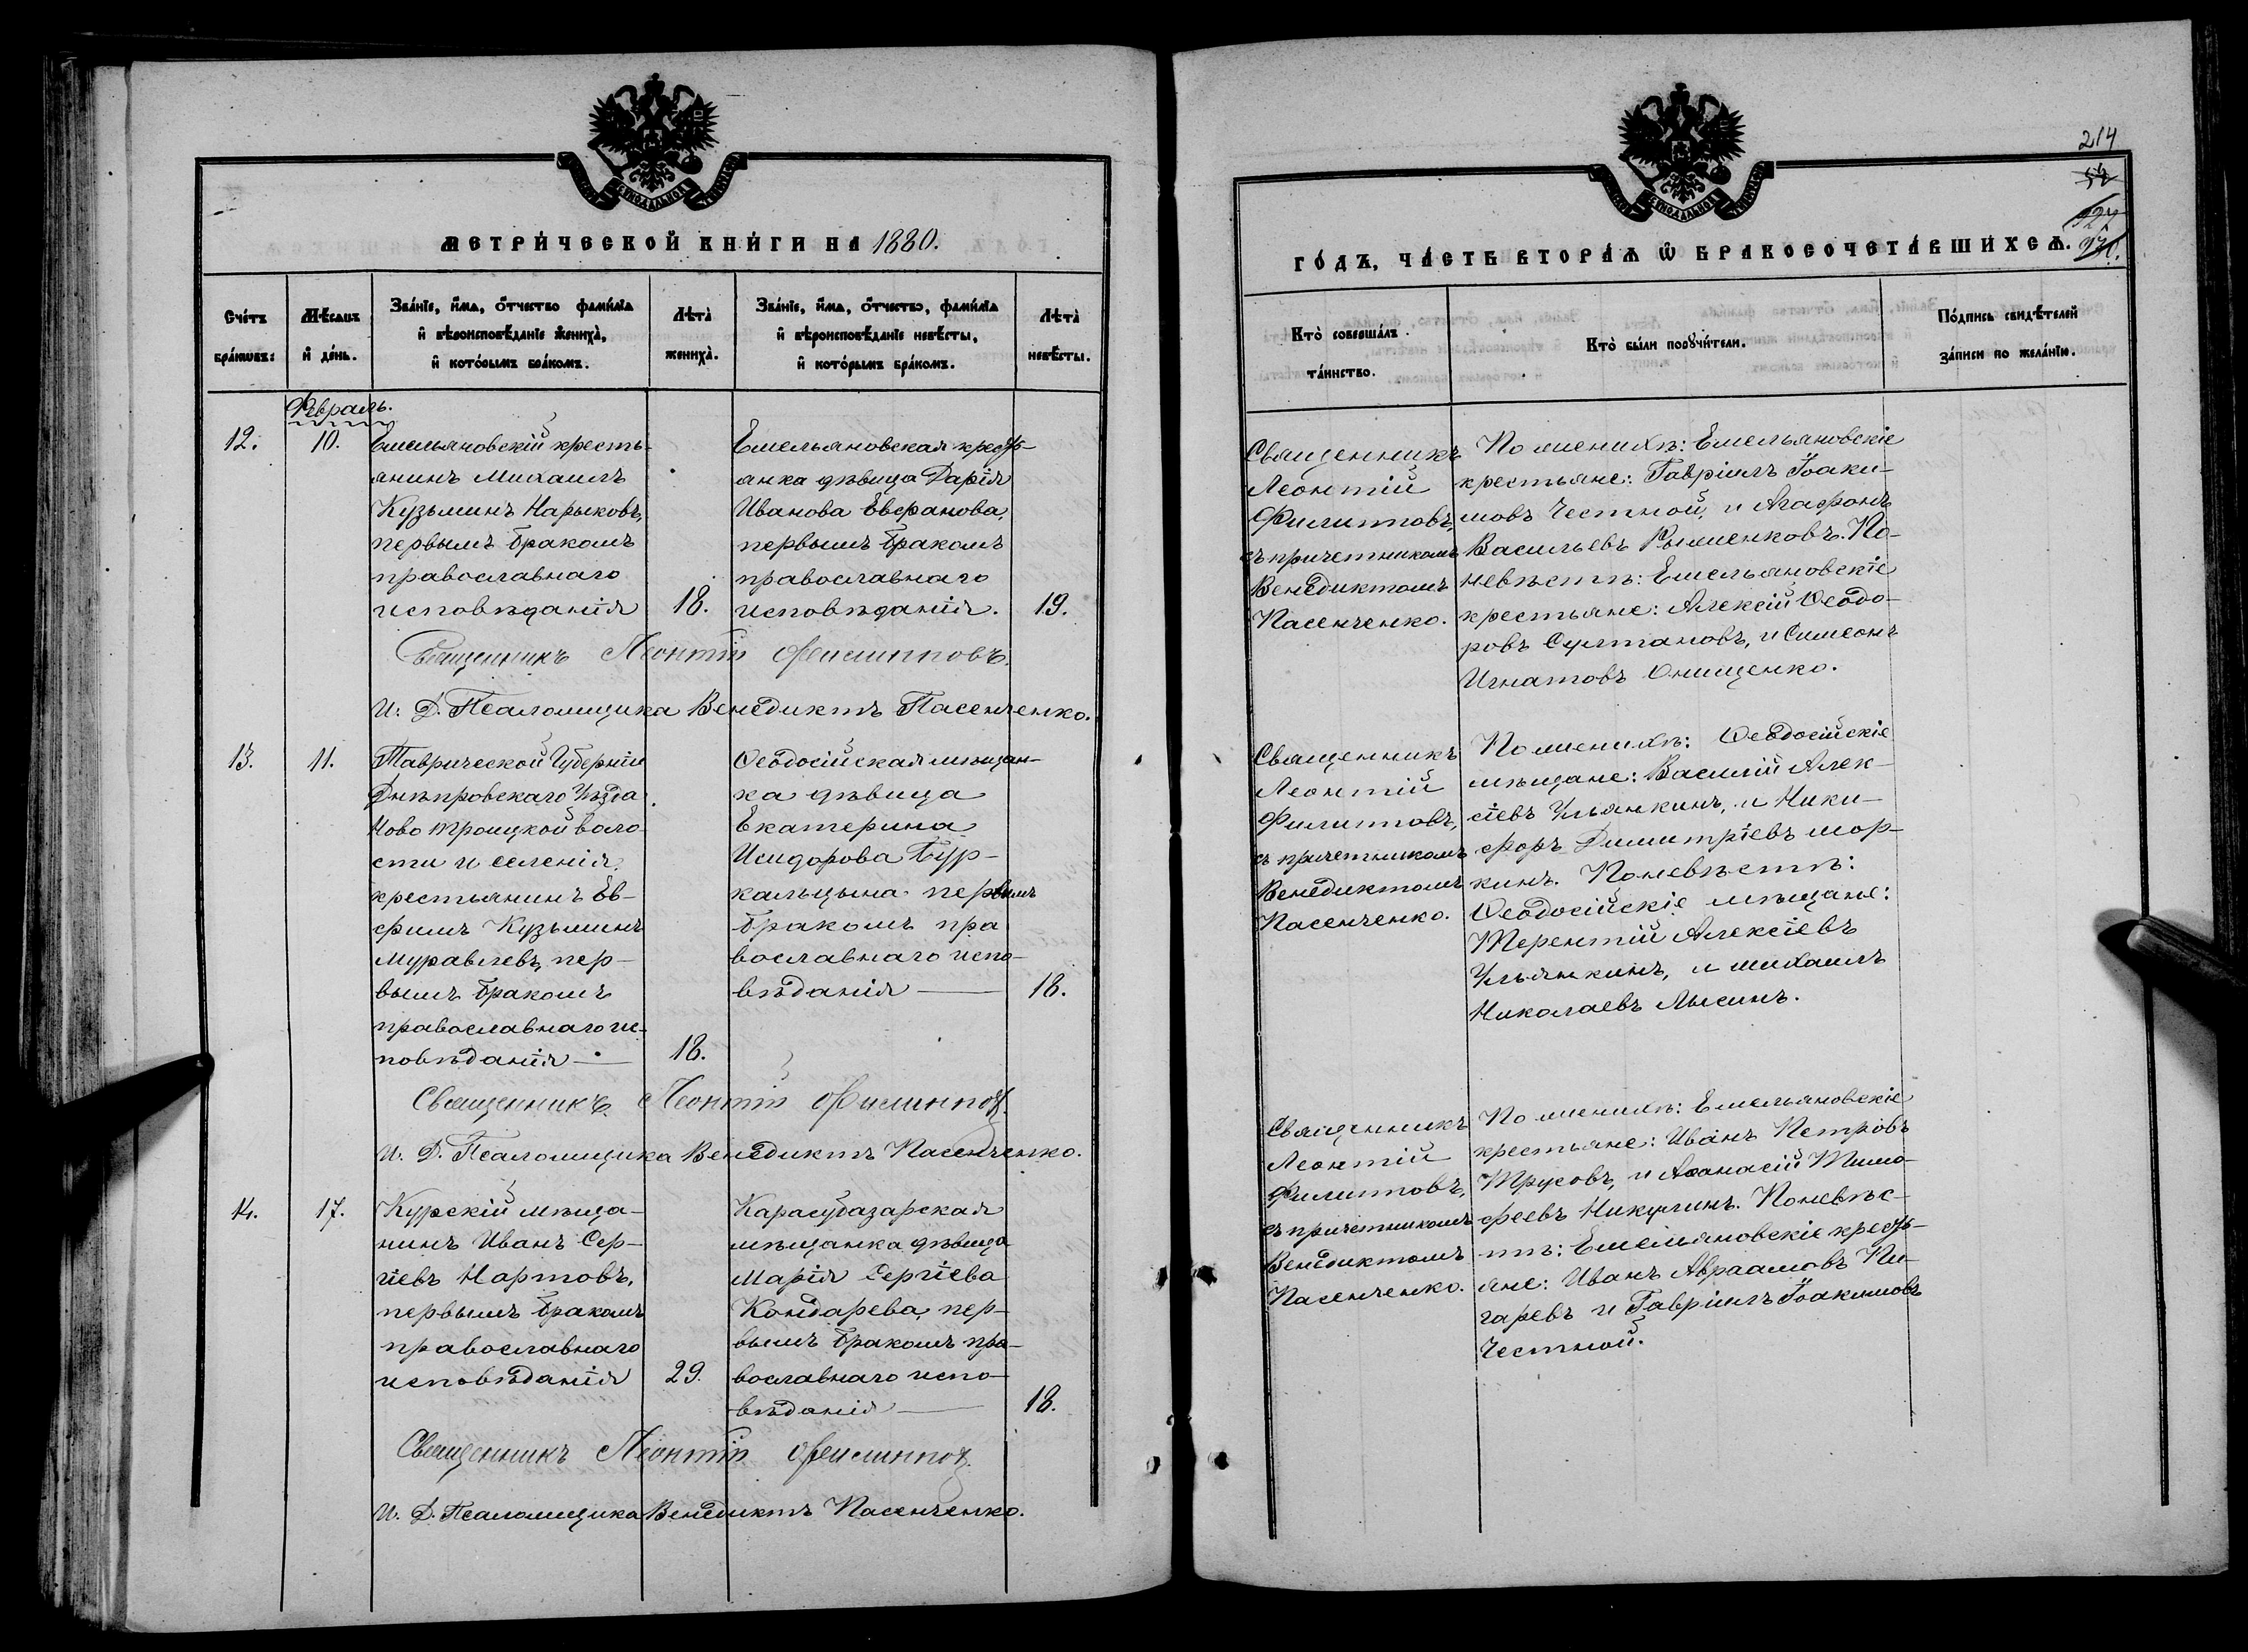 МЕТРИ́ЧЕСКОЙ КНИ́ГИ НА 1880.
Сче́тъ бра́ковъ:
Мѣ́сяцъ и҆ де́нь.
Зва́нїе, и҆́мя, о҆́тчество фами́лїа
и҆ вѣроисповѣ́данїе жениха̀,
и҆ кото́рымъ бра́комъ.
Лѣта̀ жениха̀.
Зва́нїе, и҆́мя, о҆́тчество, фами́лїа
и҆ вѣроисповѣ́данїе невѣ́сты,
и҆ кото́рымъ бра́комъ.
Лѣта̀ невѣ́сты.
Февраль.
12.
10.
Емельяновскій кресть-
янинъ Михаилъ
Кузьминъ Нарыковъ,
первымъ бракомъ
православнаго
исповѣданія
18.
Емельяновская кресть-
янка дѣвица Дарія
Иванова Евфанова,
первымъ бракомъ
православнаго
исповѣданія.
19.
Священникъ Леонтій Филипповъ.
И. Д. Псаломщика Венедиктъ Пасенченко.
13.
11.
Таврической Губерніи
Днѣпровскаго Уѣзда
Ново Троицкой воло
сти и селенія,
крестьянинъ Ев-
фимъ Кузьминъ
Муравлевъ, пер-
вымъ бракомъ
православнаго ис-
повѣданія —
18.
Ѳеодосійская мѣщан-
ка дѣвица
Екатерина
Исидорова Бур-
кальцына первымъ
бракомъ пра
вославнаго испо-
вѣданія —
18.
Священникъ Леонтій Филипповъ
И. Д. Псаломщика Венедиктъ Пасенченко.
14.
17.
Курскій мѣща-
нинъ Иванъ Сер-
гіевъ Нартовъ,
первымъ бракомъ
православнаго
исповѣданія
29.
Карасубазарская
мѣщанка дѣвица
Марія Сергіева
Кондарева, пер-
вымъ бракомъ пра-
вославнаго испо-
вѣданія —
18.
Священникъ Леонтій Филипповъ
И. Д. Псаломщика Венедиктъ Пасенченко.
214
ГО́ДЪ, ЧА́СТЬ ВТОРА́Ѧ Ѿ БРАКОСОЧЕТА́ВШИХСѦ.
Кто̀ соверша́лъ та́инство.
Кто̀ бы́ли порꙋчи́тели.
По́дпись свидѣ́телей
за́писи по жела́нїю.
Священникъ
Леонтій
Филипповъ,
съ причетникомъ
Венедиктомъ
Пасенченко.
По женихѣ: Емельяновскіе
крестьяне: Гавріилъ Іоаки-
мовъ Честной, и Агафонъ
Васильевъ Рыженковъ. По-
невѣстѣ: Емельяновскіе
крестьяне: Алексій Ѳеодо-
ровъ Султановъ, и Симеонъ
Игнатовъ Онищенко.
Священникъ
Леонтій
Филипповъ,
съ причетникомъ
Венедиктомъ
Пасенченко.
По женихѣ: Ѳеодосійскіе
мѣщане: Василій Алек-
сіевъ Ульянкинъ, и Ники-
форъ Димитріевъ Мор-
кинъ. По невѣстѣ:
Ѳеодосійскіе мѣщане:
Терентій Алексіевъ
Ульянкинъ, и Михаилъ
Николаевъ Лысинъ.
Священникъ
Леонтій
Филипповъ,
съ причетникомъ
Венедиктомъ
Пасенченко.
По женихѣ: Емельяновскіе
крестьяне: Иванъ Петровъ
Трусовъ, и Аѳанасій Тимо-
феевъ Никулинъ. По невѣс-
тѣ: Емельяновскіе кресть-
яне: Иванъ Авраамовъ Пи-
гаревъ и Гавріилъ Іоакимовъ
Честной.